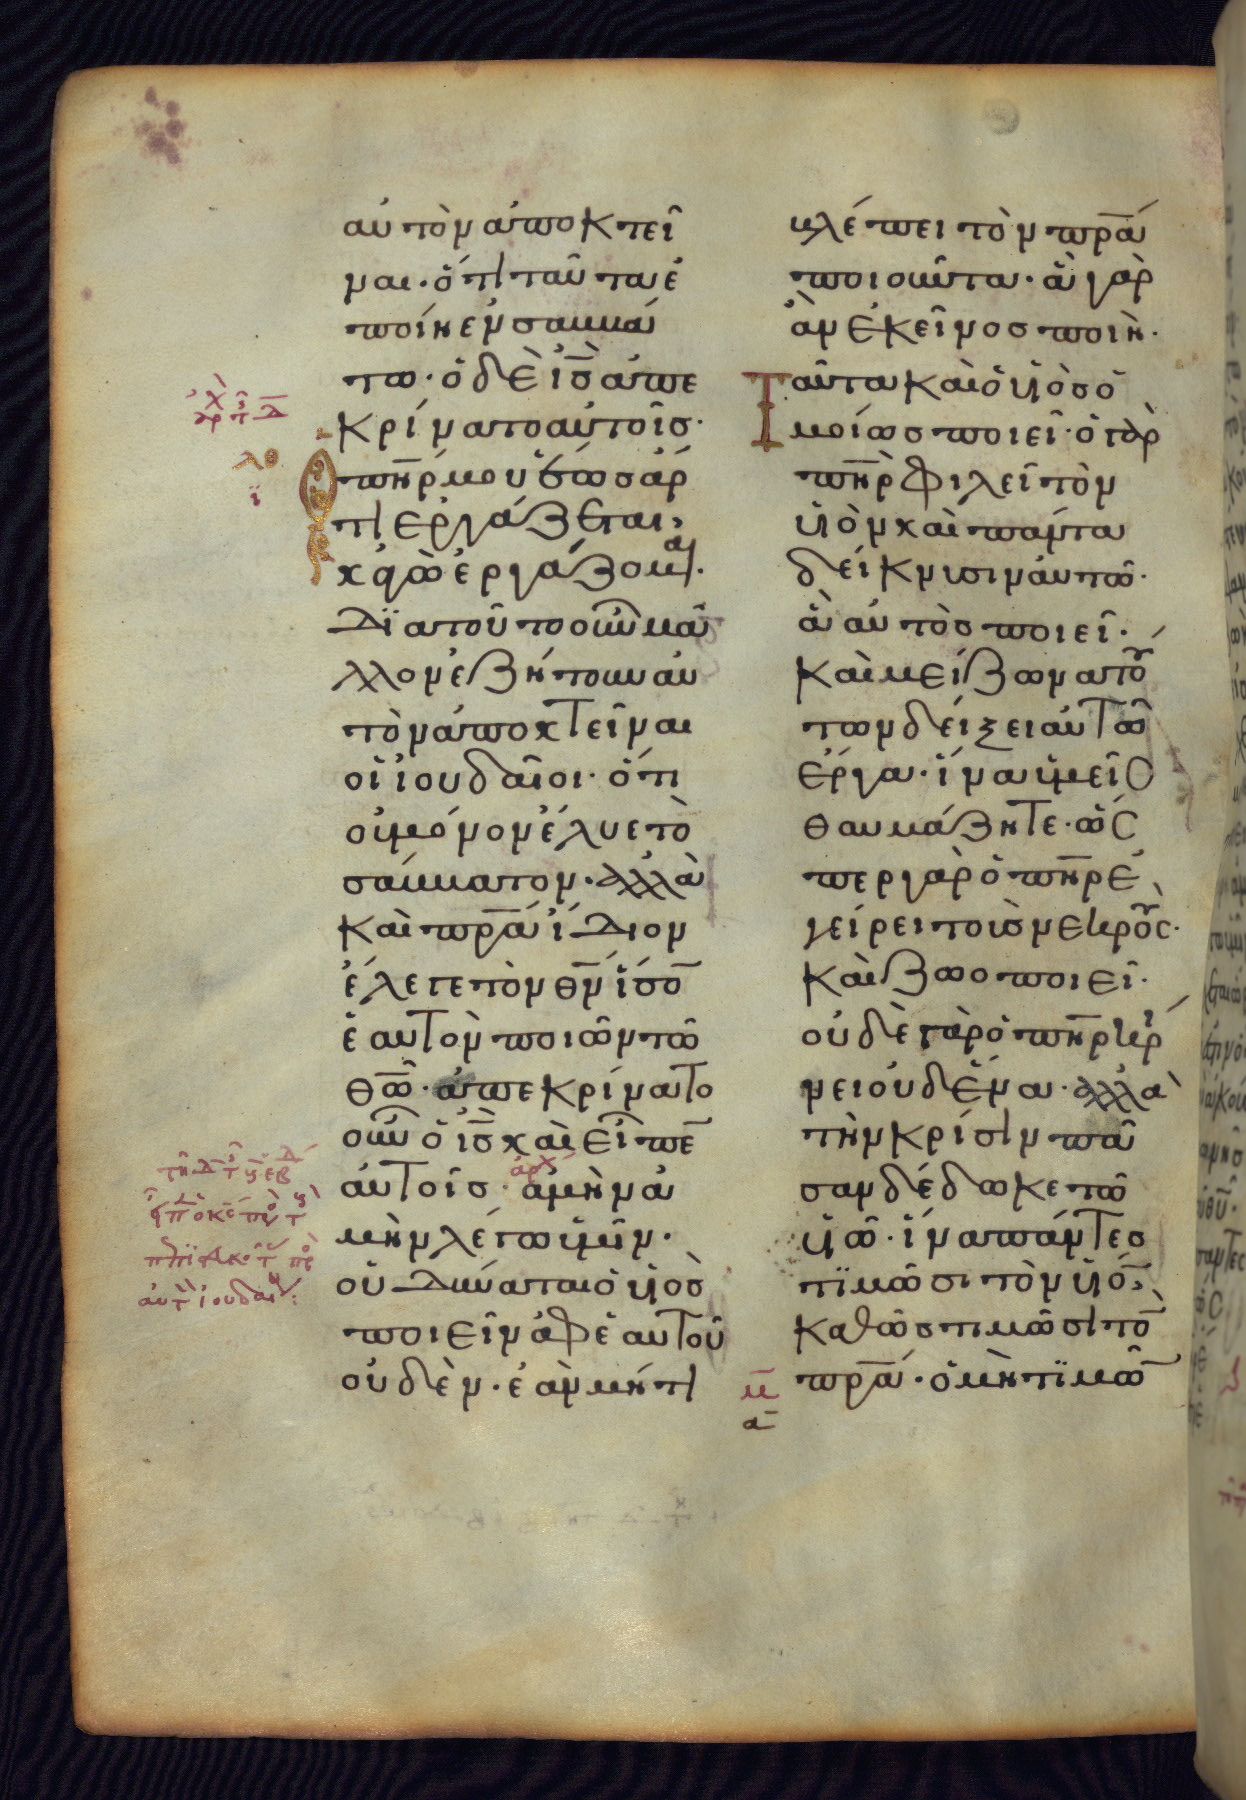 αὐτὸν ἀποκτεῖ
ναι· ὅτι ταῦτα ἐ
ποίηεν σαββά
τω· ὁ δὲ ἰ̅ς̅ ἀπε
κρίνατο αὐτοῖς·
Ὁ π̅η̅ρ̅ μου ἕως ἄρ
τι ἐργάζεται·
κἀγὼ ἐργάζομαι·
Διατοῦτο οὖν μᾶ
λλον ἐζήτουν αὐ
τὸν ἀποκτεῖναι
οἱ ἰουδαῖοι· ὅτι
οὐ μόνον ἔλυε τὸ
σάββατον· ἀλλὰ
καὶ π̅ρ̅α̅ ἴδιον
ἔλεγε τὸν θ̅ν̅ ἴσο̅
ἑαυτὸν ποιῶν τῶ
θ̅ω̅· ἀπεκρίνατο
οὖν ὁ ἰ̅ς̅ καὶ εἶπε̅
αὐτοῖς· ἀμὴν ἀ
μὴν λέγω ὑμῖν·
οὐ δύναται ὁ υἱὸσ
ποιεῖν ἀφ ἑαυτοῦ
οὐδὲν· ἐὰν μή τι
βλέπει τὸν π̅ρ̅α̅
ποιοῦντα· ἃ γὰρ
ἂν ἐκεῖνοσ ποιῆ·
Ταῦτα καὶ ὁ υἱὸσ ὁ
μοίωσ ποιεῖ· ὁ γὰρ
π̅η̅ρ̅ φιλεῖ τὸν
υἱὸν καὶ πάντα
δείκνυσιν αὐτῶ·
ἃ αὐτὸσ ποιεῖ·
Καὶ μείζωνα τού
των δείξει αὐτῶ
ἔργα· ἵνα ὑμεῖς
θαυμάζητε· ὥς
περ γὰρ ὁ π̅η̅ρ̅ ἐ
γείρει τοὺσ νεκροὺς·
Καὶ ζωοποιεῖ·
οὐδὲ γὰρ ὁ π̅η̅ρ̅ κρί
νει οὐδένα· ἀλλὰ
τὴν κρίσιν πᾶ
σαν δέδωκε τῶ
υἱῶ· ἵνα πάντεσ
τιμῶσι τὸν υἱό̅·
Καθὼσ τιμῶσι τὸ̅
π̅ρ̅α̅· ὁ μὴ τιμῶ̅